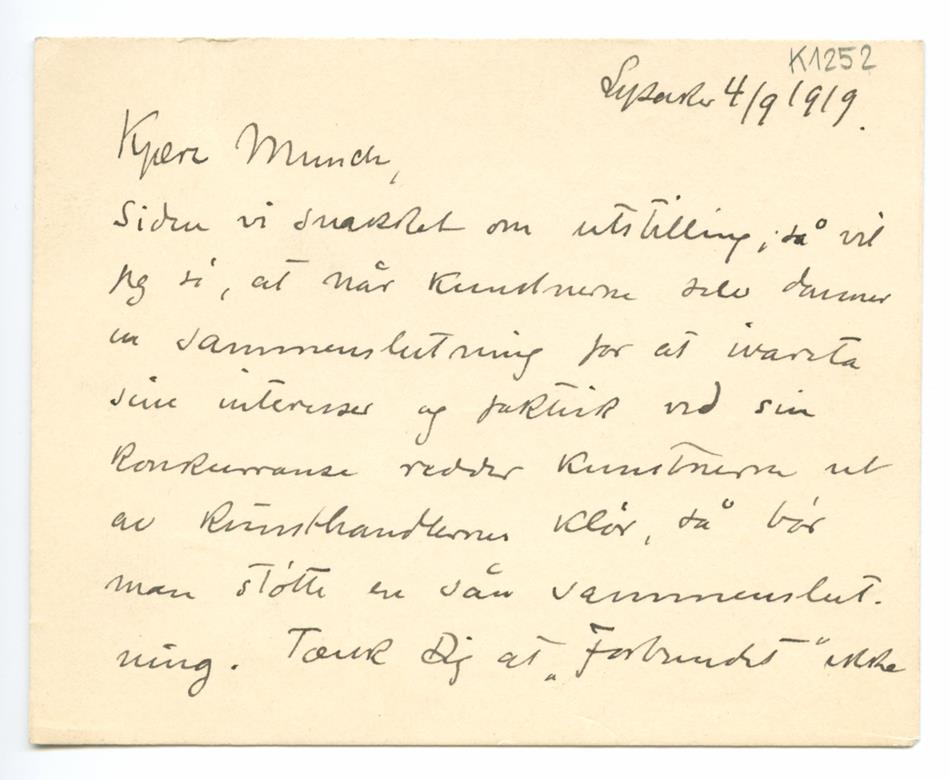 K1252
Lysaker 4/9 1919.
Kjære Munch,
Siden vi snakket om utstilling, så vil
jeg si, at når kunstnerne selv danner
en sammenslutning for at ivareta
sine interesser og faktisk ved sin
konkurranse redder kunstnerne ut
av kunsthandlernes klør, så bør
man støtte en sån sammenslut-
ning. Tænk Dig at „Forbundet“ ikke